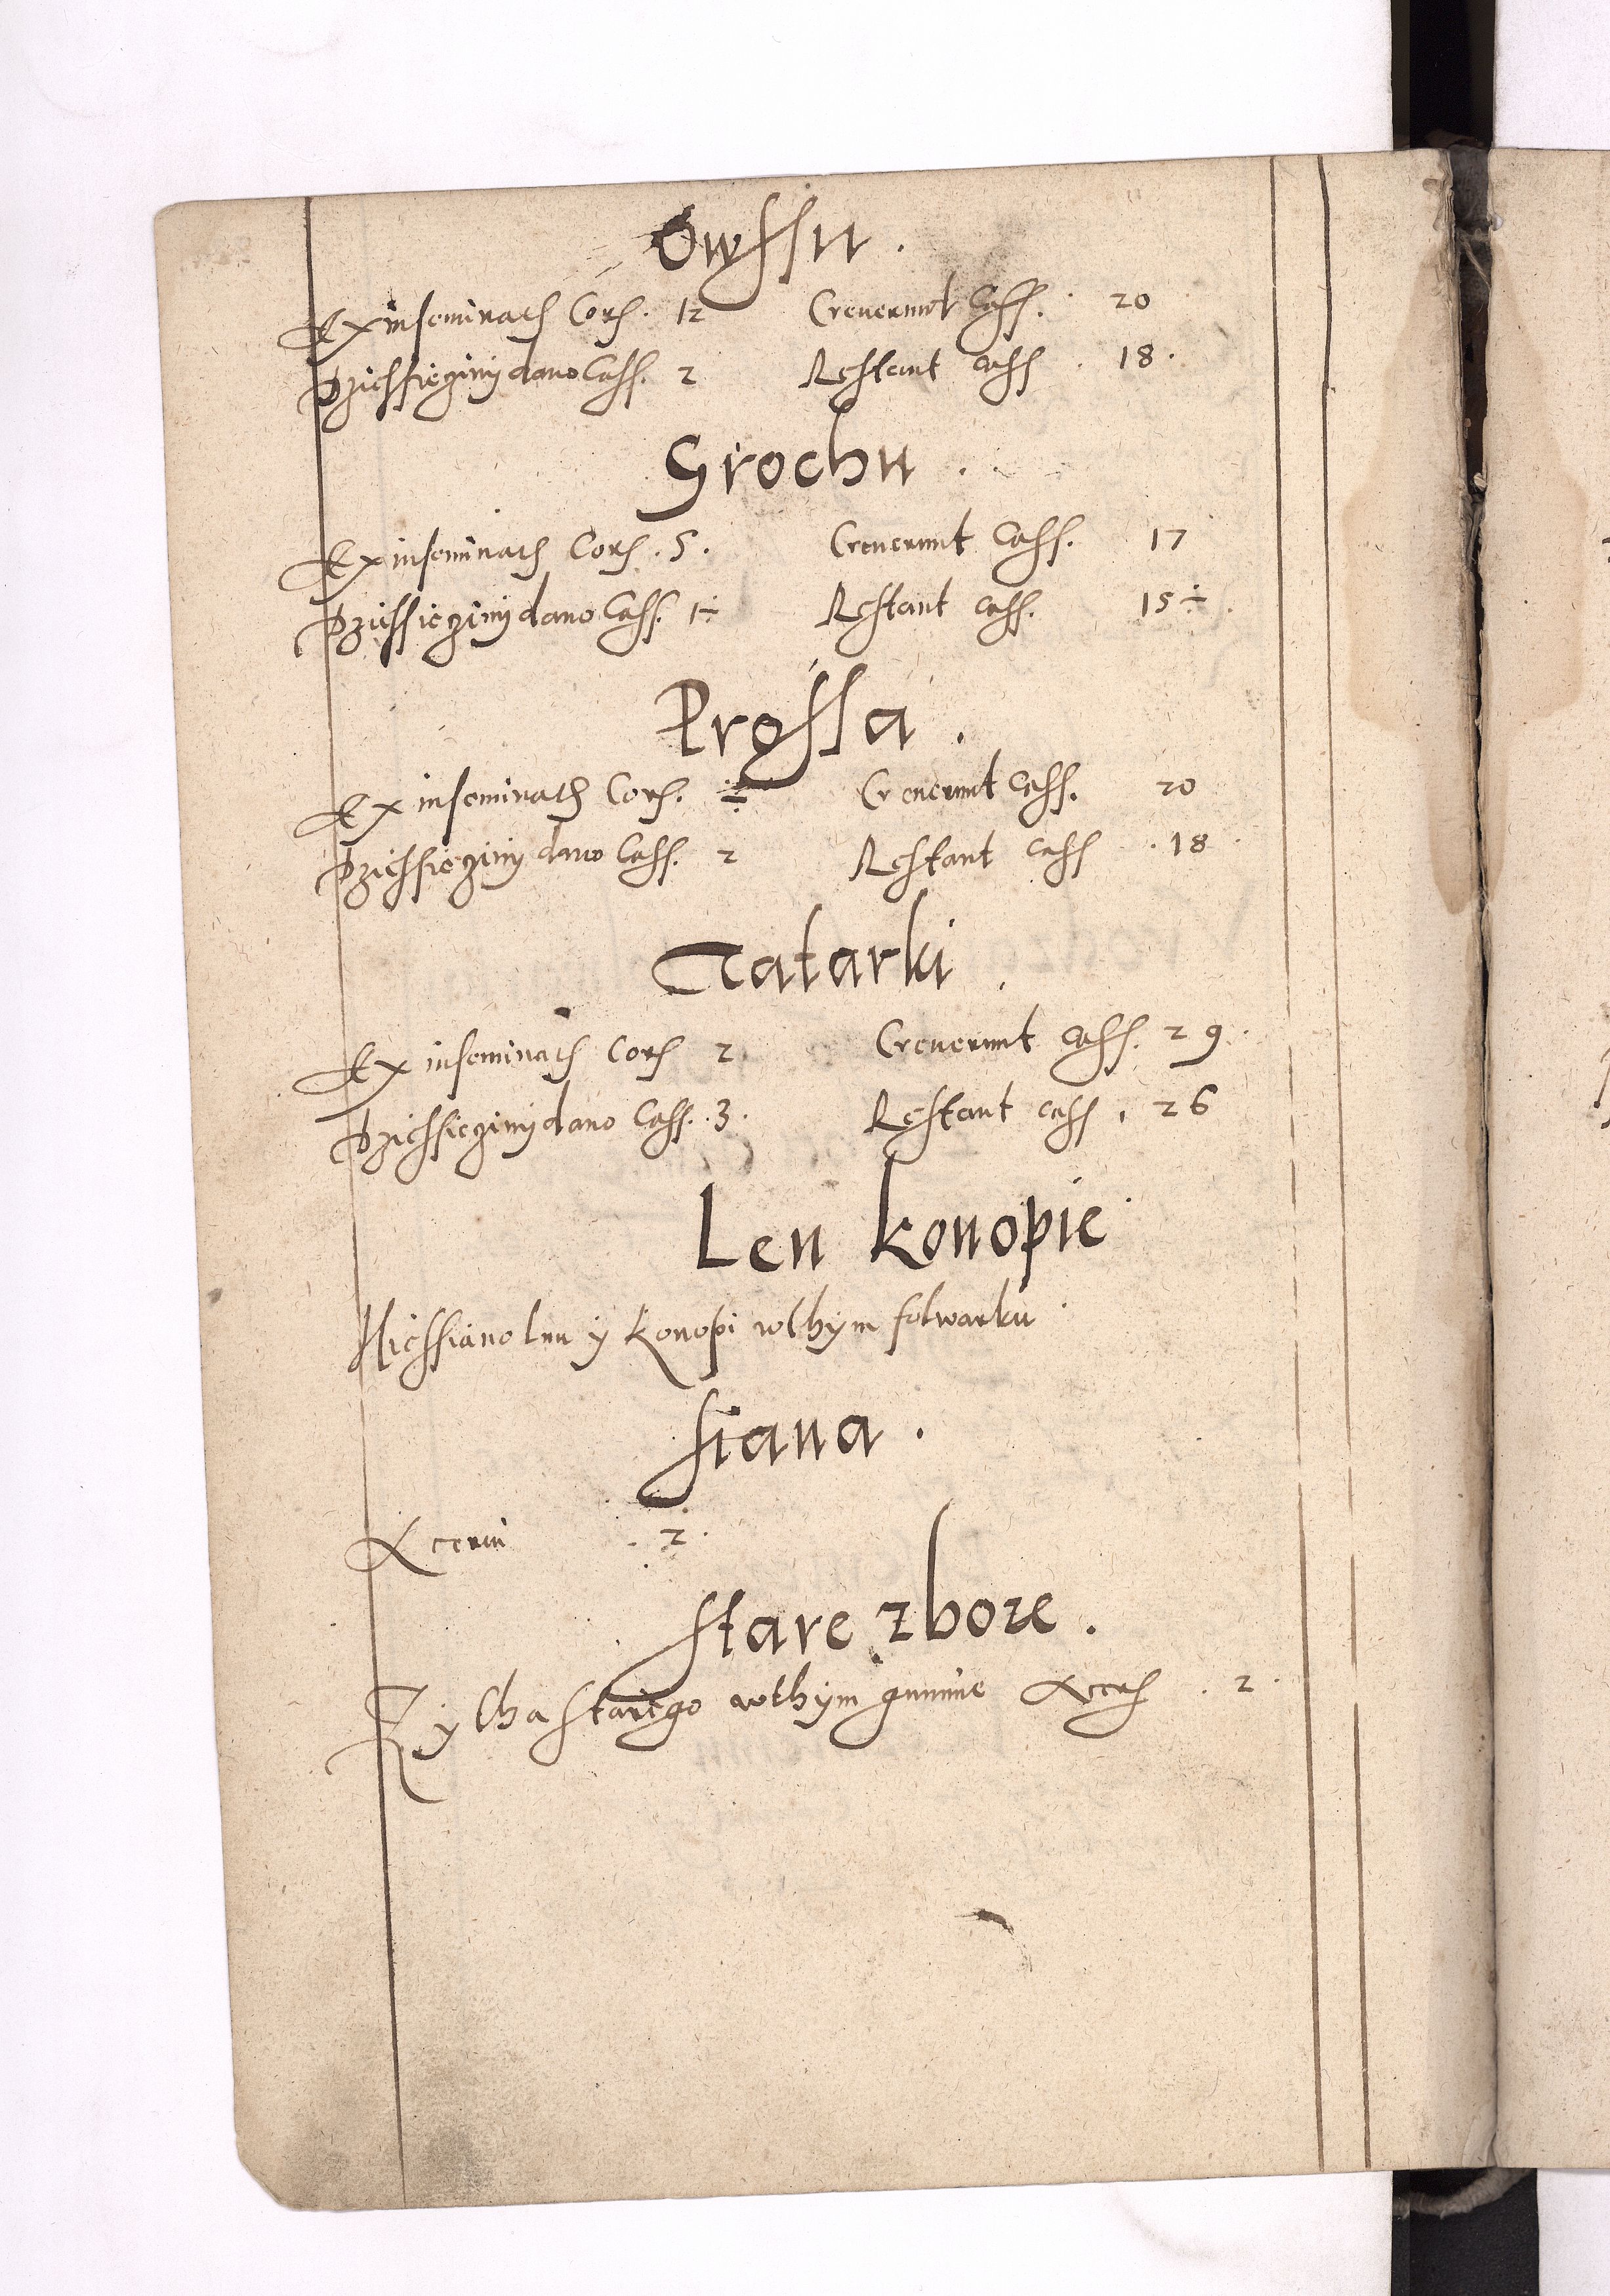 Owssu.
Ex inseminatis Cor. 12 Creuerunt Cass. 20
Dziessieginy dano Cass. 2 Restant cass. 18.
Grochu.
Ex inseminatis Cor. 5. Creuerunt Cass. 17
Dziessieginy dano Cass. 1÷ Restant cass. 15÷.
Prossa.
Ex inseminatis Cor. ÷ Creuerunt Cass. 20
Dziessieginy dano Cass. 2 Restant cass. 18
Tatarki.
Ex inseminatis Cor. 2 Creuerunt cass. 29.
Dziessieginy dano Cass. 3. Restant cass. 26
Len konopie
Niessiano lnu y konopi wthym folwarku
Siana.
Acerui 2.
Stare zboze.
Zytha starego wthym gumnie 2.